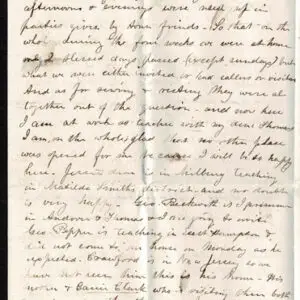 afternoons & evenings were used up in
parties given by Horn friends - So that on the
whole during the four weeks we were at home
only 2 blessed days passed (except sundays) but
what we were either invited or had callers or visitors
And as for sewing & resting they were al
together out of the question - and now here
I am at work as teacher with my dear Thomas
I am, on the whole, glad that this other place
was opened for me because I will be so happy
here. Jennie is in teaching
in Matilda Smith's district - and no doubt
is very happy - Geo. Beckwith is
in Andover & Thomas & I are going to
Geo Pepper is teaching in East Hampton &
did not come to our house on Monday as he
expected. Crawford is in New Jersey so we
have not seen him this is his Room - His
& Carrie Clark who is visiting them both